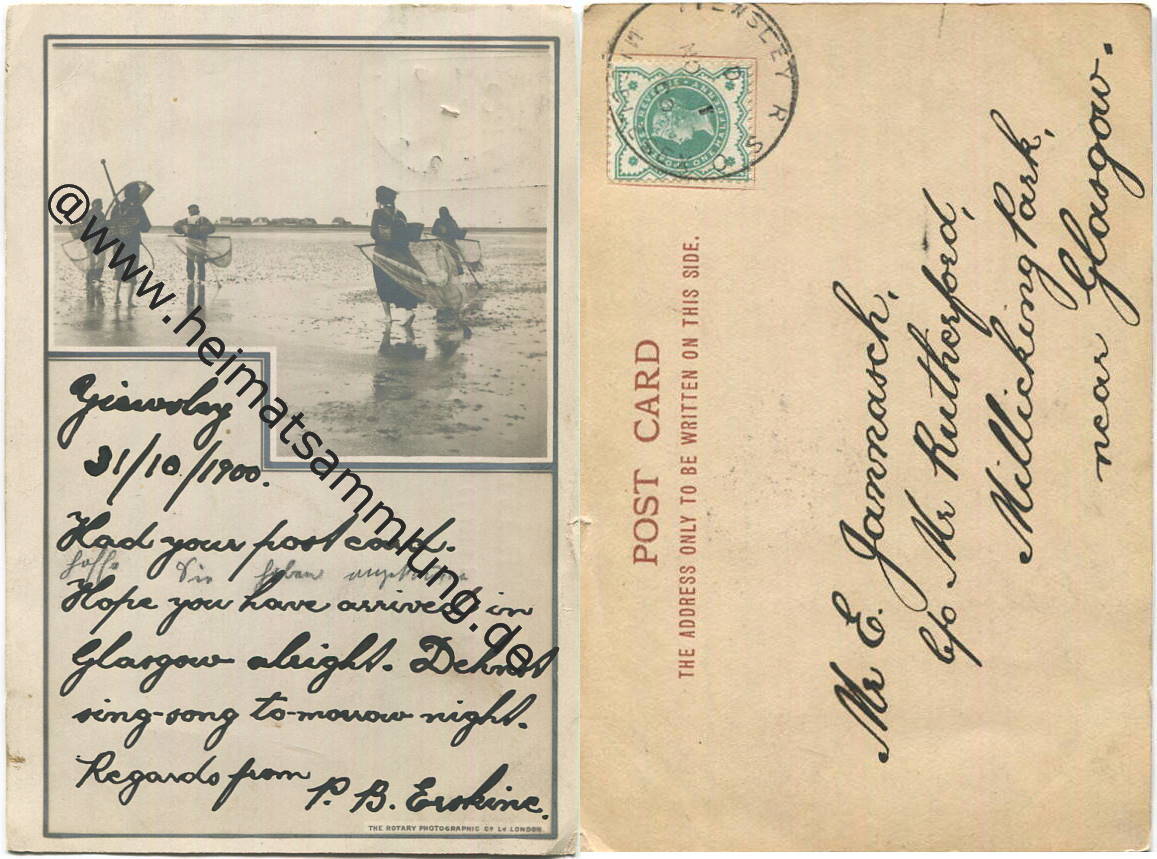 Yiewsley
31/10/1900.
Had your post card.
hoffe Sie haben
Hope you have arrived in
Glasgow alright. Dehnst
sing-song to-morrow night.
Regards from
P. B. Erskine.
THE ROTARY PHOTOGRAPHIC Co Ld LONDON
@www.heimatsammlung.de
YIEWSLEY R.S.O
NO 1
00
POSTAGE & REVENUE
ONE HALFPENNY
POST CARD
THE ADDRESS ONLY TO BE WRITTEN ON THIS SIDE.
Mr E. Jannasch,
C/o Mr Rutherford,
Millicking Park,
near Glasgow.